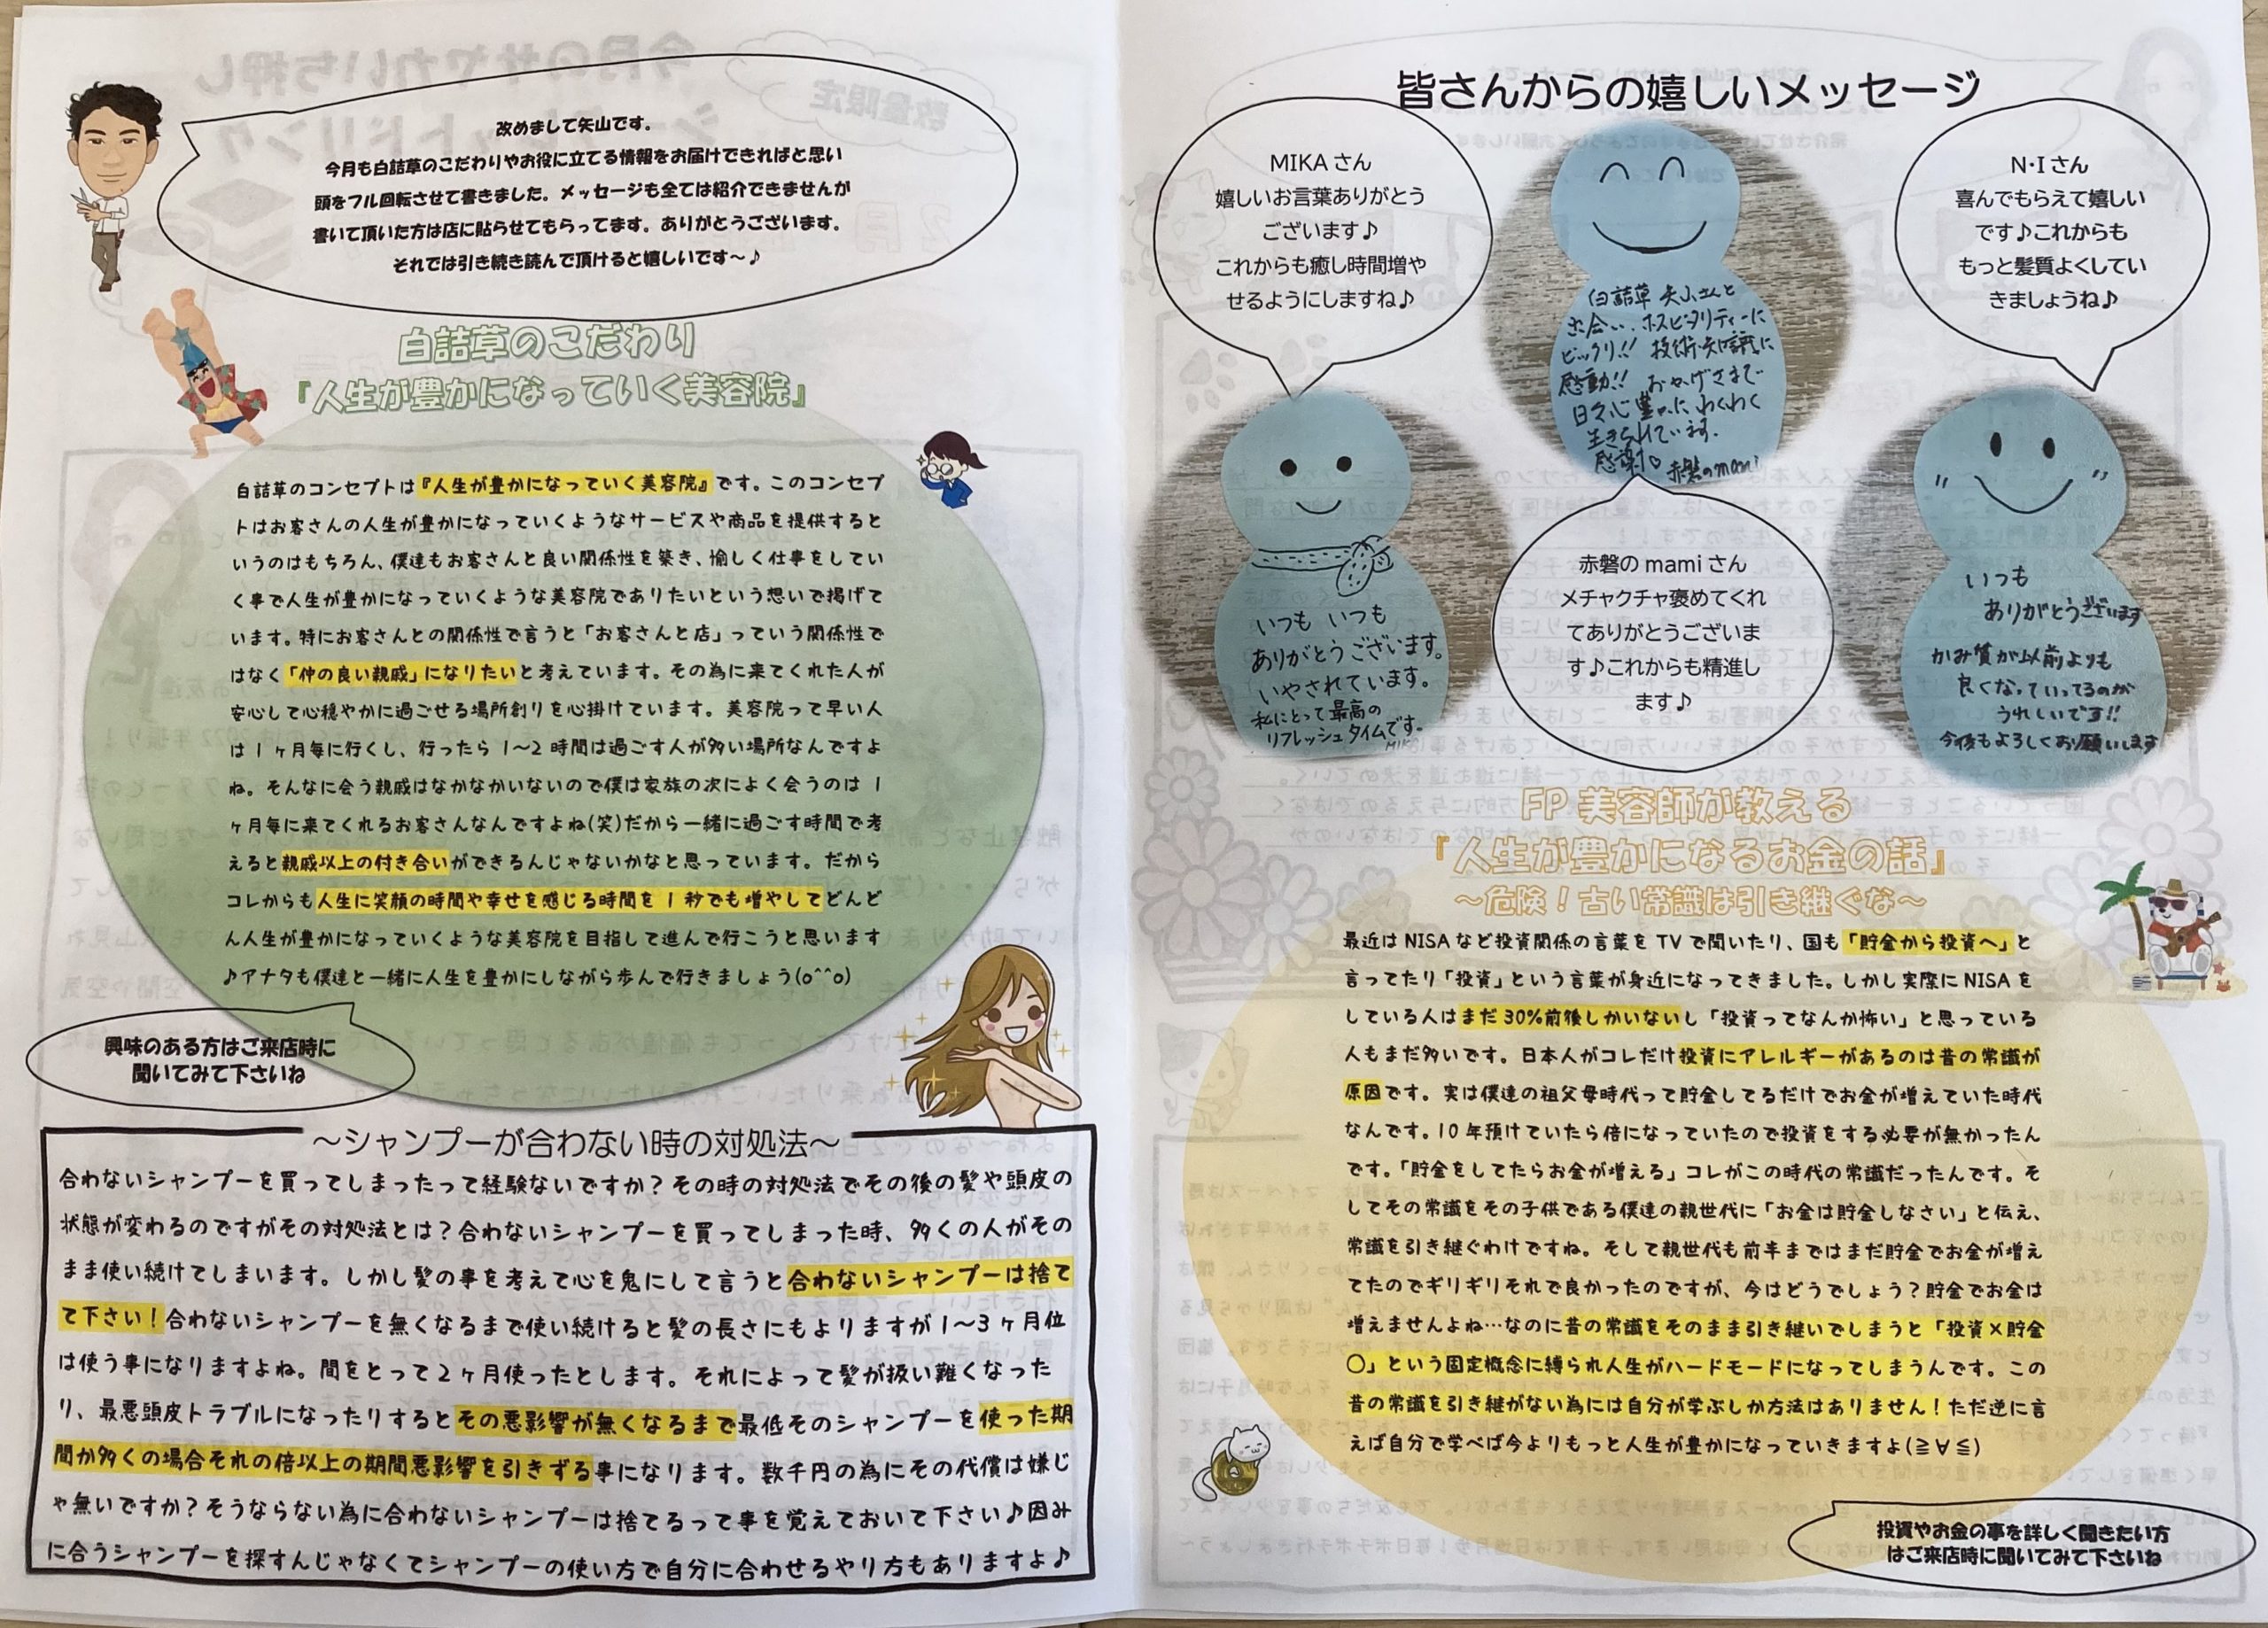 改めまして矢山です。
今月も白詰草のこだわりやお役に立てる情報をお届けできればと思い
頭をフル回転させて書きました。メッセージも全ては紹介できませんが
書いて頂いた方は店に貼らせてもらってます。ありがとうございます。
それでは引き続き読んで頂けると嬉しいです～♪
白詰草のこだわり
『人生が豊かになっていく美容院』
白詰草のコンセプトは『人生が豊かになっていく美容院』です。このコンセプ
トはお客さんの人生が豊かになっていくようなサービスや商品を提供すると
いうのはもちろん、僕達もお客さんと良い関係性を築き、愉しく仕事をしてい
く事で人生が豊かになっていくような美容院でありたいという想いで掲げて
います。特にお客さんとの関係性で言うと「お客さんと店」っていう関係性で
はなく「仲の良い親戚」になりたいと考えています。その為に来てくれた人が
安心して心穏やかに過ごせる場所創りを心掛けています。美容院って早い人
は1ヶ月毎に行くし、行ったら1～2時間は過ごす人が多い場所なんですよ
ね。そんなに会う親戚はなかなかいないので僕は家族の次によく会うのは1
ヶ月毎に来てくれるお客さんなんですよね(笑)だから一緒に過ごす時間で考
えると親戚以上の付き合いができるんじゃないかなと思っています。だから
コレからも人生に笑顔の時間や幸せを感じる時間を1秒でも増やしてどんど
ん人生が豊かになっていくような美容院を目指して進んで行こうと思います
♪アナタも僕達と一緒に人生を豊かにしながら歩んで行きましょう(o^^o)
興味のある方はご来店時に
聞いてみて下さいね
～シャンプーが合わない時の対処法～
合わないシャンプーを買ってしまったって経験ないですか？その時の対処法でその後の髪や頭皮の
状態が変わるのですがその対処法とは？合わないシャンプーを買ってしまった時、多くの人がその
まま使い続けてしまいます。しかし髪の事を考えて心を鬼にして言うと合わないシャンプーは捨て
て下さい！合わないシャンプーを無くなるまで使い続けると髪の長さにもよりますが1～3ヶ月位
は使う事になりますよね。間をとって2ヶ月使ったとします。それによって髪が扱い難くなった
り、最悪頭皮トラブルになったりするとその悪影響が無くなるまで最低そのシャンプーを使った期
間か多くの場合それの倍以上の期間悪影響を引きずる事になります。数千円の為にその代償は嫌じ
ゃ無いですか？そうならない為に合わないシャンプーは捨てるって事を覚えておいて下さい♪因み
に合うシャンプーを探すんじゃなくてシャンプーの使い方で自分に合わせるやり方もありますよ♪
皆さんからの嬉しいメッセージ
MIKAさん
嬉しいお言葉ありがとう
ございます♪
これからも癒し時間増や
せるようにしますね♪
白詰草 矢山さんと
出会い、ホスピタリティーに
ビックリ!! 技術・知識に
感動!! おかげさまで
日々心豊かにわくわく
生きられています。
感謝♡ 赤磐のmami
N・Iさん
喜んでもらえて嬉しい
です♪これからも
もっと髪質よくしてい
きましょうね♪
いつも いつも
ありがとうございます。
いやされています。
私にとって最高の
リフレッシュタイムです。
MIKA
赤磐のmamiさん
メチャクチャ褒めてくれ
てありがとうございま
す♪これからも精進し
ます♪
いつも
ありがとうございます
かみ質が以前よりも
良くなっていってるのが
うれしいです!!
今後もよろしくお願いします
FP美容師が教える
『人生が豊かになるお金の話』
～危険！古い常識は引き継ぐな～
最近はNISAなど投資関係の言葉をTVで聞いたり、国も「貯金から投資へ」と
言ってたり「投資」という言葉が身近になってきました。しかし実際にNISAを
している人はまだ30%前後しかいないし「投資ってなんか怖い」と思っている
人もまだ多いです。日本人がコレだけ投資にアレルギーがあるのは昔の常識が
原因です。実は僕達の祖父母時代って貯金してるだけでお金が増えていた時代
なんです。10年預けていたら倍になっていたので投資をする必要が無かったん
です。「貯金をしてたらお金が増える」コレがこの時代の常識だったんです。そ
してその常識をその子供である僕達の親世代に「お金は貯金しなさい」と伝え、
常識を引き継ぐわけですね。そして親世代も前半まではまだ貯金でお金が増え
てたのでギリギリそれで良かったのですが、今はどうでしょう？貯金でお金は
増えませんよね…なのに昔の常識をそのまま引き継いでしまうと「投資×貯金
〇」という固定概念に縛られ人生がハードモードになってしまうんです。この
昔の常識を引き継がない為には自分が学ぶしか方法はありません！ただ逆に言
えば自分で学べば今よりもっと人生が豊かになっていきますよ(≧∀≦)
投資やお金の事を詳しく聞きたい方
はご来店時に聞いてみて下さいね